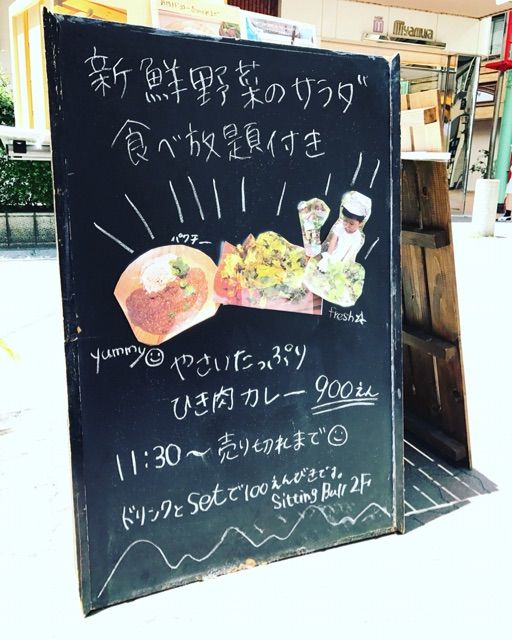 Miyamura
新鮮野菜のサラダ
食べ放題付き
パクチー
fresh☆
yummy☺ やさいたっぷり
ひき肉カレー 900えん
11:30〜売り切れまで☺
ドリンクとsetで100えんびきです。
Sitting Bull 2F